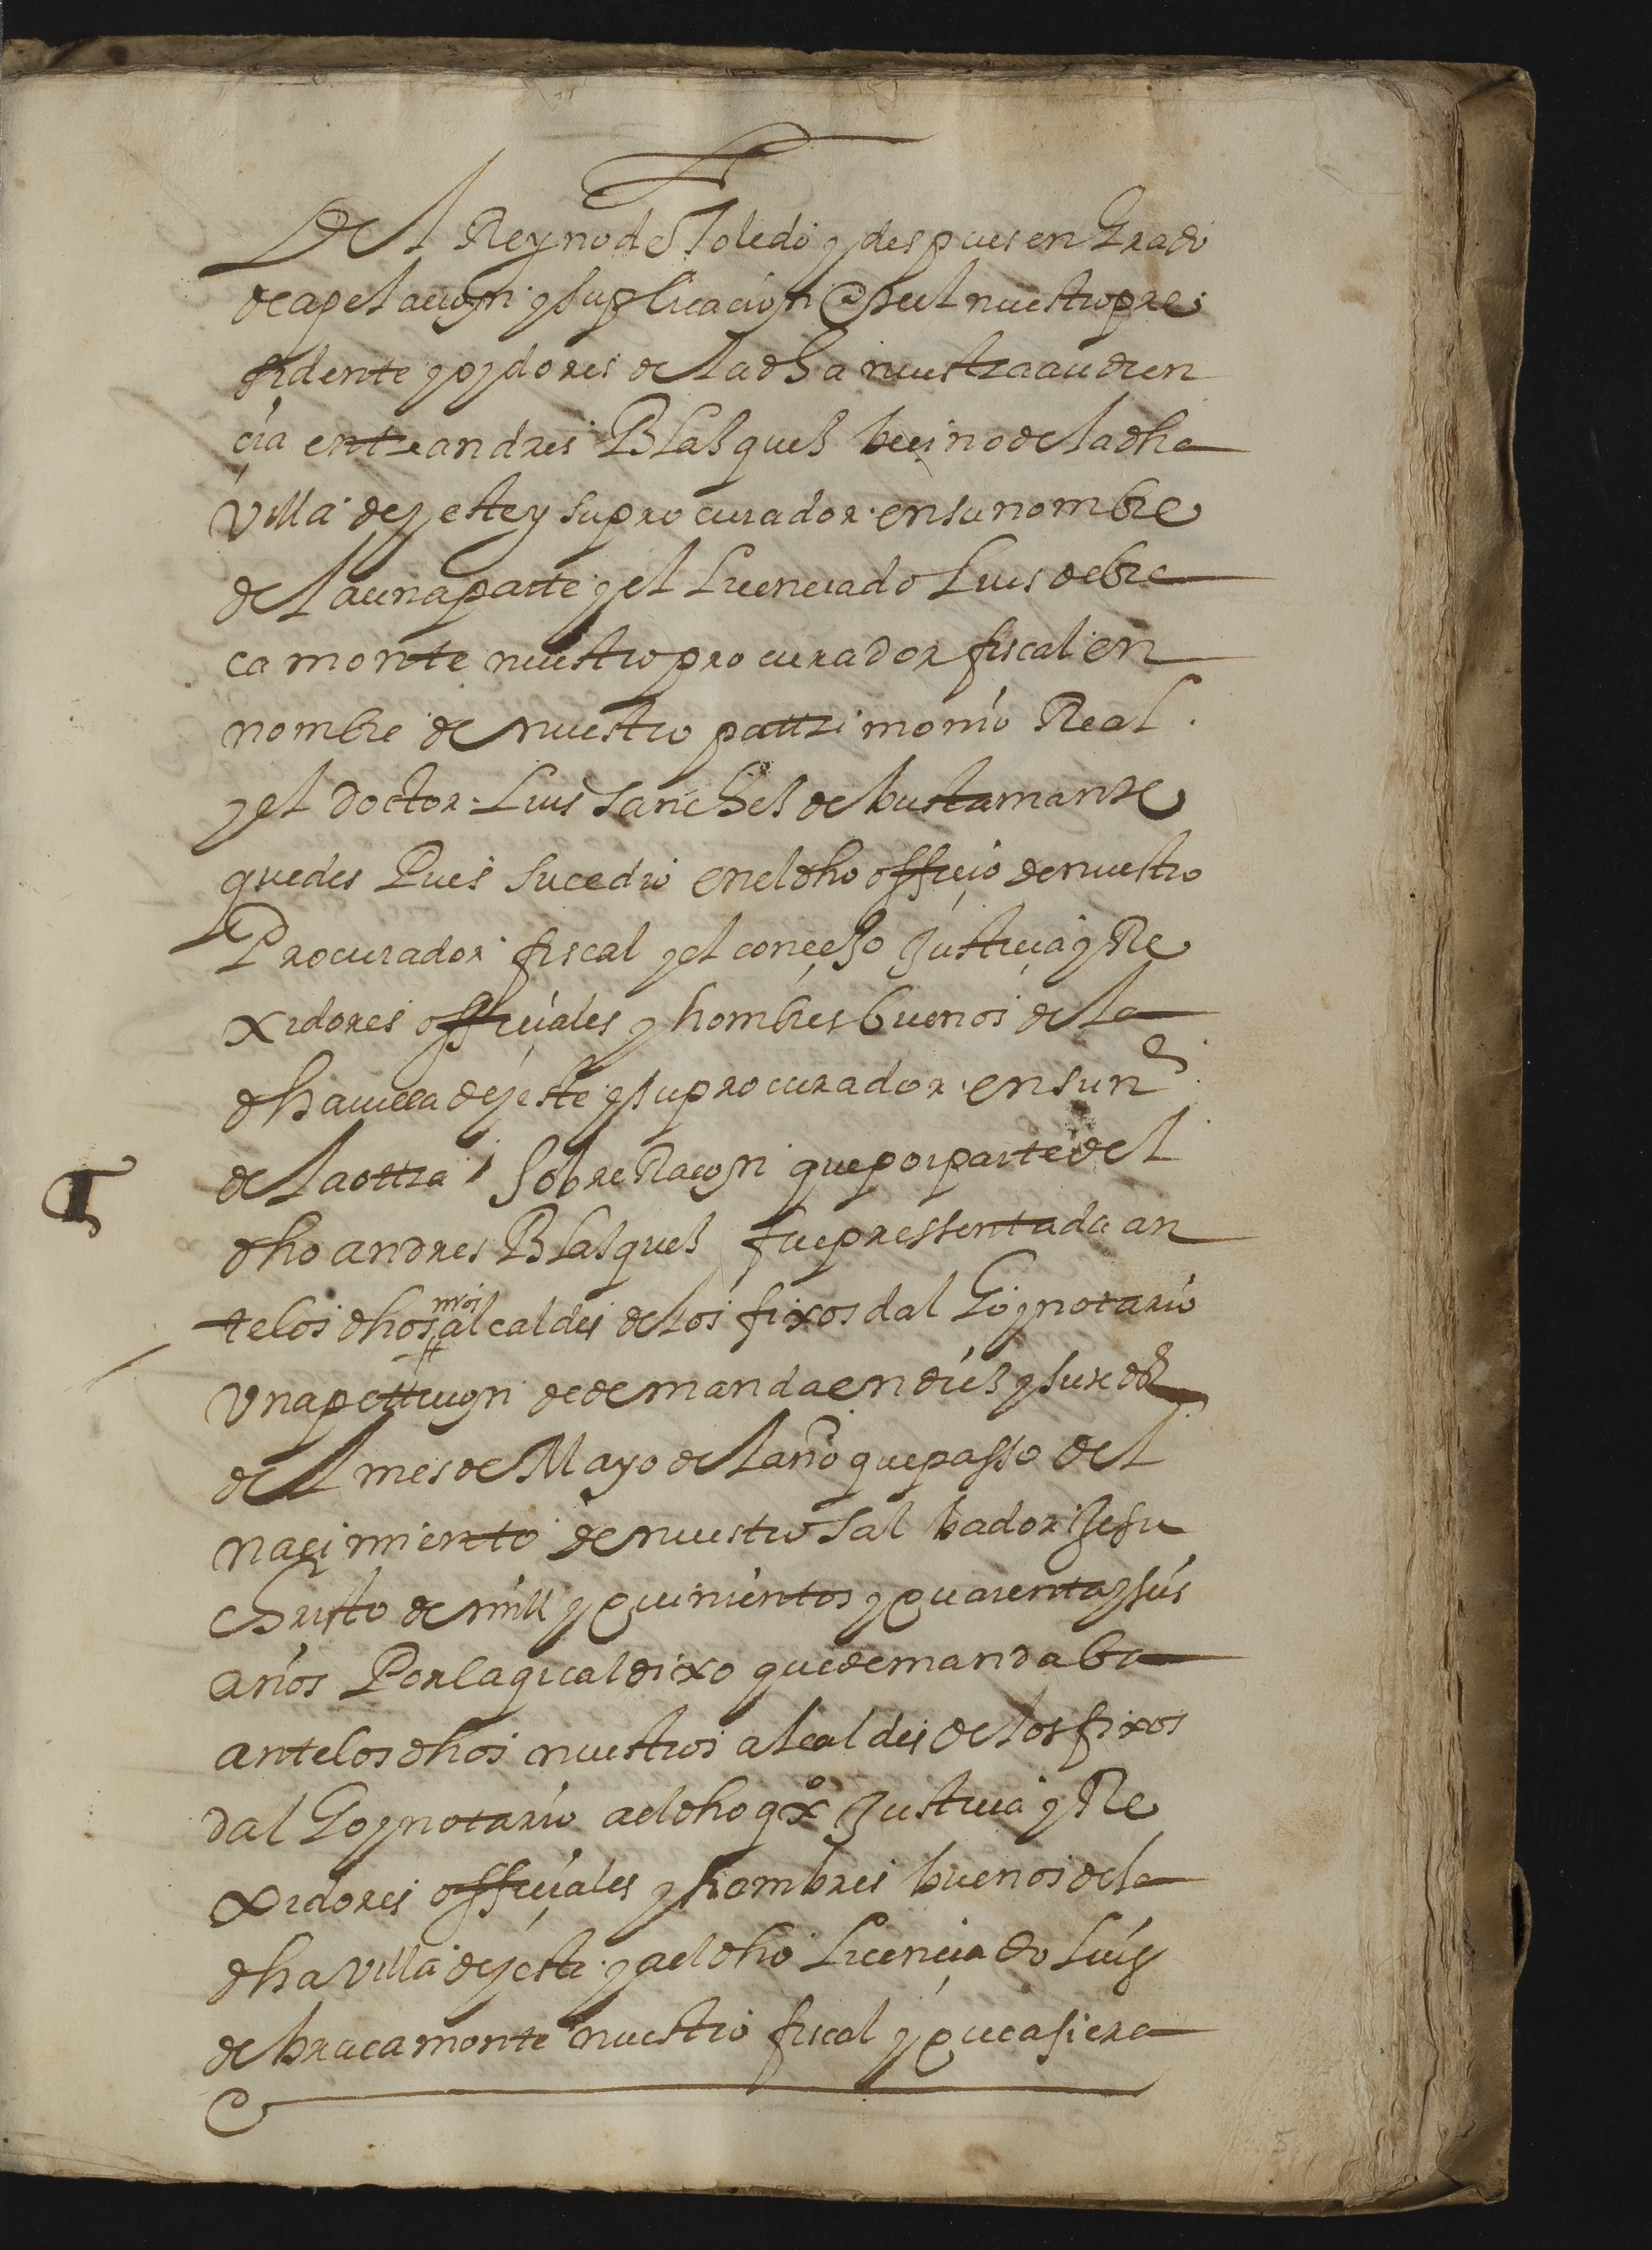 Del Reyno de Toledo y despues en Grado
de apelacion y suplicacion ante el nuestro pre
sidente y oydores de la dha nuestra audien
cia entre andres Blasques vecino de la dha
villa de yeste y su procurador en su nombre
de la una parte y el Licenciado Luis de bra
camonte nuestro procurador fiscal en
nombre de nuestro pattrimonio Real
y el doctor Luis sanches de bustamante
que des Pues sucedio en el dho officio de nuestro
Procurador fiscal y el conçejo Justicia y Re
xidores officiales y hombres buenos de la
dha villa de yeste y su procurador en su ne
de la ottra sobre Racon que por parte del
dho andres Blasques fue pressentada an
te los dhos nros alcaldes de los fixos dal Go y notario
Una petticion de demanda en dies y siete ds
del mes de Mayo del año que passo del
naçimiento de nuestro salbador Jesu
christo de mill y quinientos y quarenta y seis
años Por la qual dixo que demandaba
ante los dhos nuestros alcaldes de los fixos
dal Go y notario al dho qxo Justicia y Re
xidores officiales y hombres buenos de la
dha villa de yeste y al dho Licenciado Luis
de bracamonte nuestro fiscal y que asi era